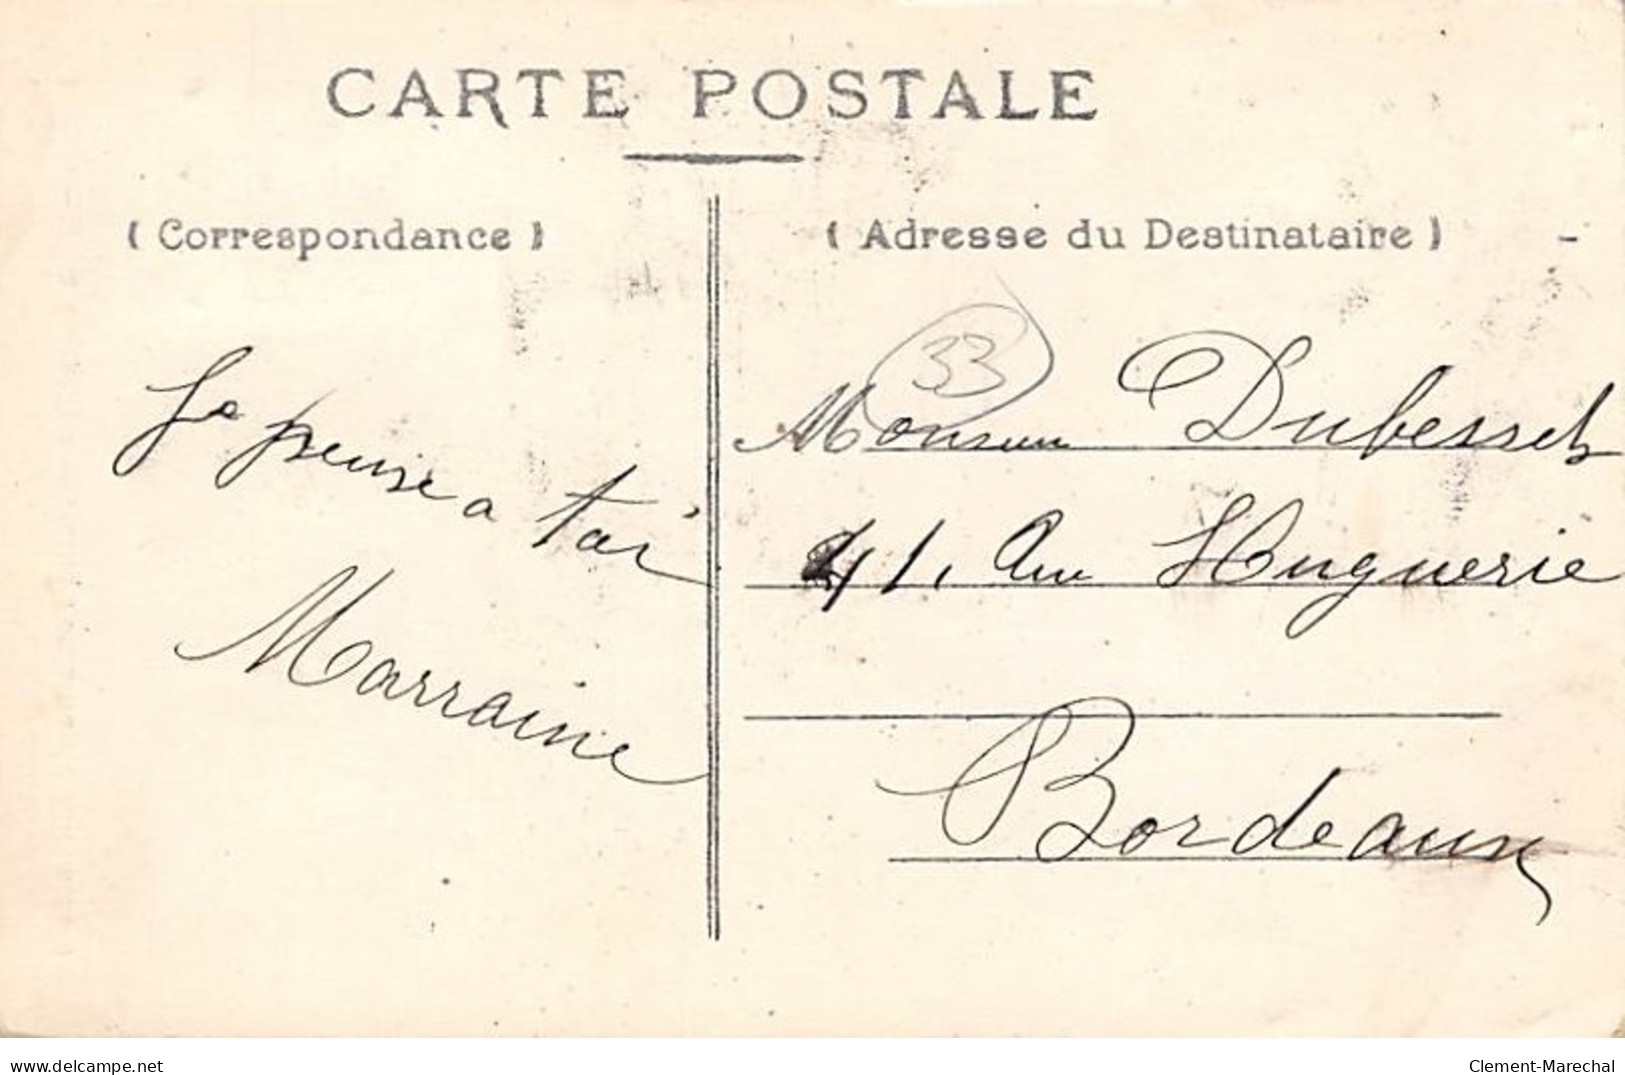 CARTE POSTALE
( Correspondance )
( Adresse du Destinataire )
33
Je pense a toi
Marraine
Monsieur Dubesset
41, Rue Huguerie
Bordeaux
delcampe.net
Clement-Marechal